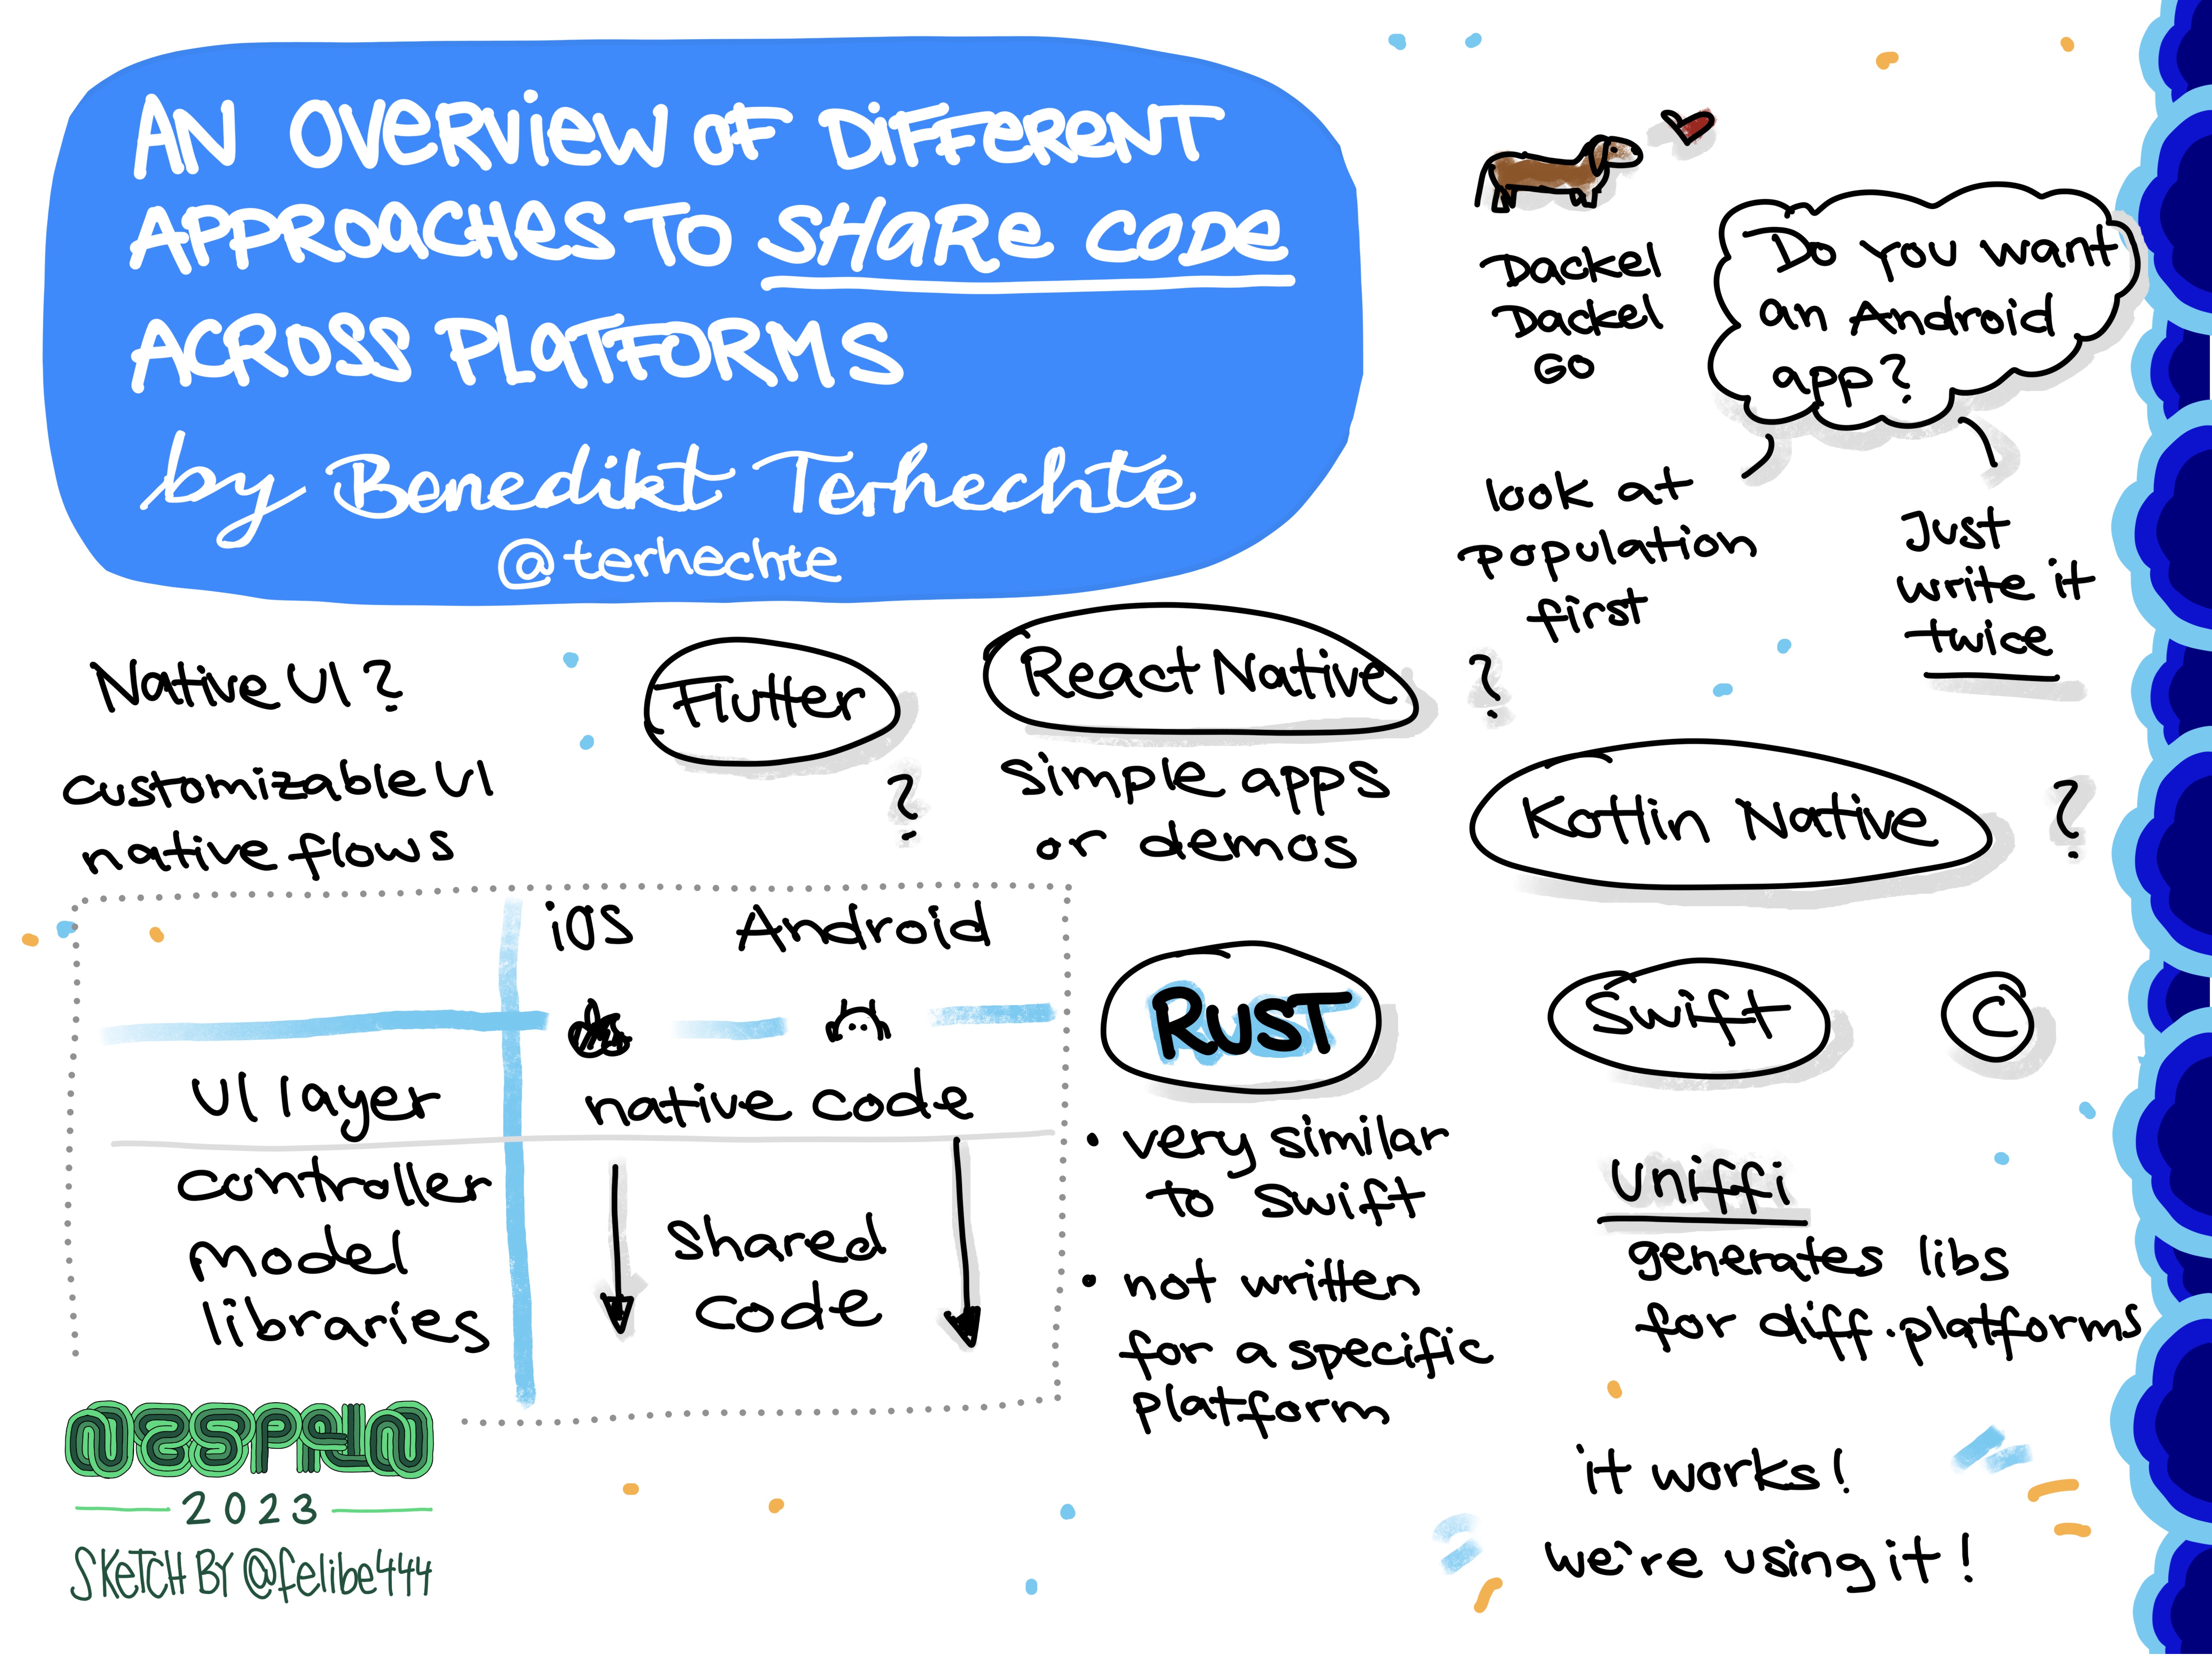 AN OVERVIEW OF DIFFERENT
APPROACHES TO SHARE CODE
ACROSS PLATFORMS
by Benedikt Terhechte
@terhechte
Dackel
Dackel
GO
Do you want
an Android
app?
look at
population
first
Just
write it
twice
Native UI?
customizable UI
native flows
Flutter
?
React Native
?
simple apps
or demos
Kotlin Native
?
iOS Android
UI layer native code
controller
model
libraries
Shared
code
RUST
• very similar
to Swift
• not written
for a specific
platform
Swift
C
Uniffi
generates libs
for diff. platforms
it works!
we're using it!
NSSPAIN
2023
SKETCH BY @felibe444